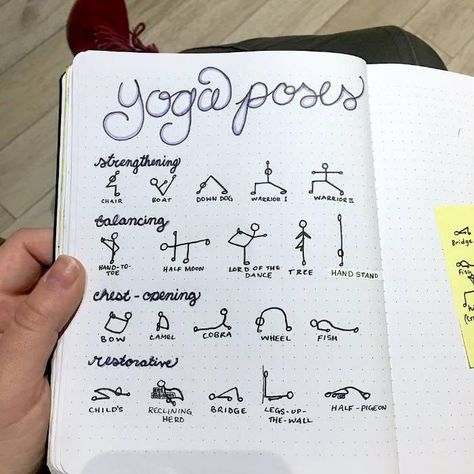 yoga poses
strengthening
CHAIR BOAT DOWN DOG WARRIOR I WARRIOR II
balancing
HAND-TO-TOE HALF MOON LORD OF THE DANCE TREE HAND STAND
chest-opening
BOW CAMEL COBRA WHEEL FISH
restorative
CHILD'S RECLINING HERO BRIDGE LEGS-UP-THE-WALL HALF-PIGEON
Bridge
Fish